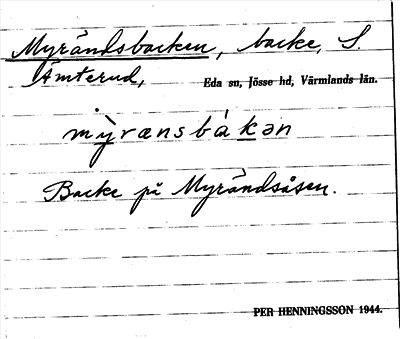 Myrändsbacken, backe, S.
Ämterud, Eda sn, Jösse hd, Värmlands län.
mỳrænsbàkən
Backe på Myrändsåsen.
PER HENNINGSSON 1944.